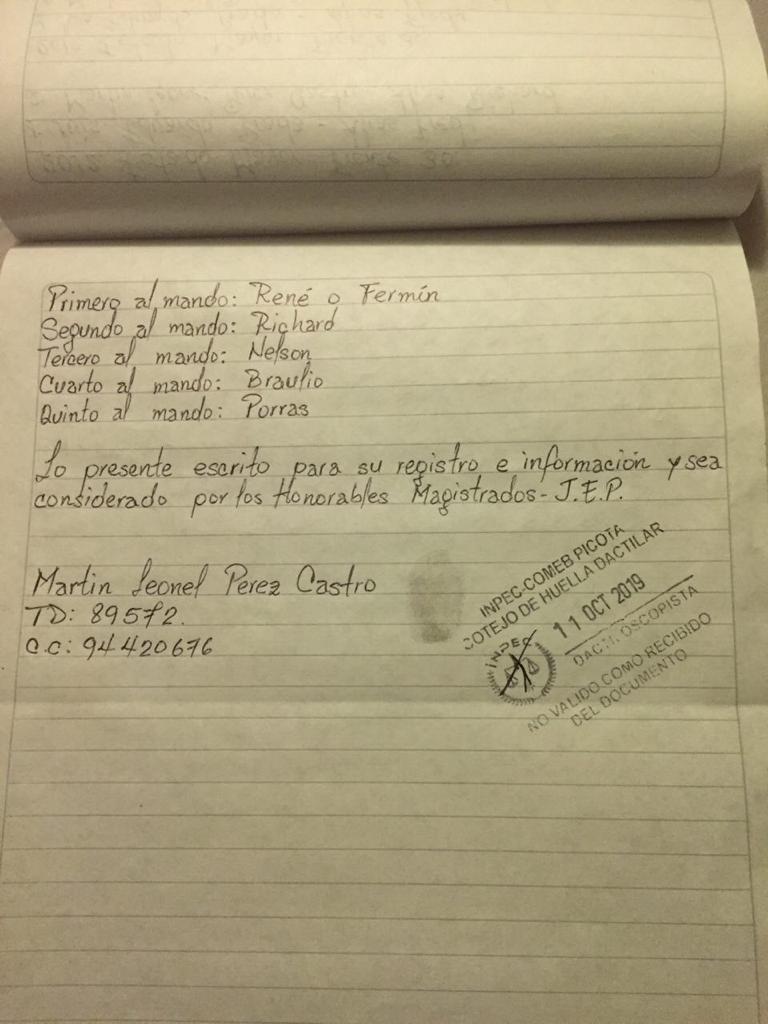 Primero al mando: René o Fermín
Segundo al mando: Richard
Tercero al mando: Nelson
Cuarto al mando: Braulio
Quinto al mando: Porras
Lo presente escrito para su registro e información y sea
considerado por los Honorables Magistrados - J.E.P.
Martin Leonel Perez Castro
TD: 89572.
C.C: 94420676
INPEC-COMEB PICOTA
COTEJO DE HUELLA DACTILAR
11 OCT 2019
INPEC
DACTILOSCOPISTA
NO VALIDO COMO RECIBIDO
DEL DOCUMENTO